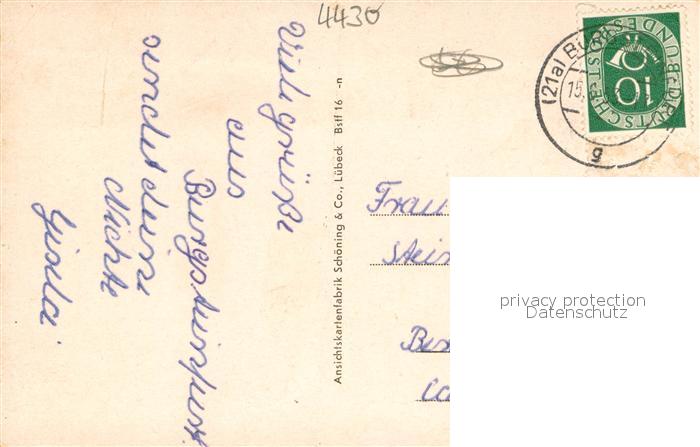 4430
Viele grüße
aus
Burgsteinfurt
sendet deine
Nichte
Gisela.
Ansichtskartenfabrik Schöning & Co., Lübeck Bstf 16 -n
DEUTSCHE BUNDESPOST
10
(21a) BU
15.
g
Frau
Stei
privacy protection
Datenschutz